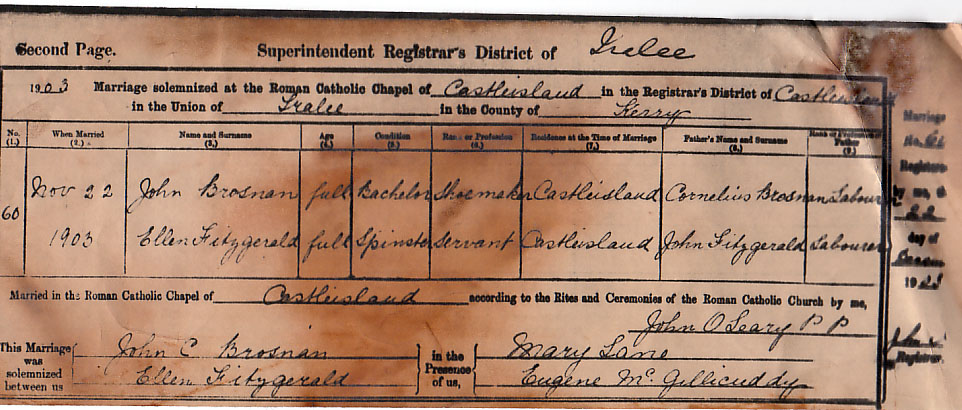 Second Page. Superintendent Registrar's District of Tralee
1903 Marriage solemnized at the Roman Catholic Chapel of Castleisland in the Registrar's District of Castleisland
in the Union of Tralee in the County of Kerry
No. When Married Name and Surname Age Condition Rank or Profession Residence at the Time of Marriage Father's Name and Surname Rank or Profession of Father
(1.) (2.) (3.) (4.) (5.) (6.) (7.) (8.) (9.)
Nov 22 John Brosnan full Bachelor Shoemaker Castleisland Cornelius Brosnan Labourer
60
1903 Ellen Fitzgerald full Spinster Servant Castleisland John Fitzgerald Labourer
Married in the Roman Catholic Chapel of Castleisland according to the Rites and Ceremonies of the Roman Catholic Church by me,
John O'Leary P P
This Marriage was solemnized between us
John C Brosnan
Ellen Fitzgerald
in the Presence of us,
Mary Lane
Eugene Mc Gillicuddy
Marriage
No.
Registered
by me,
day of
19
Registrar